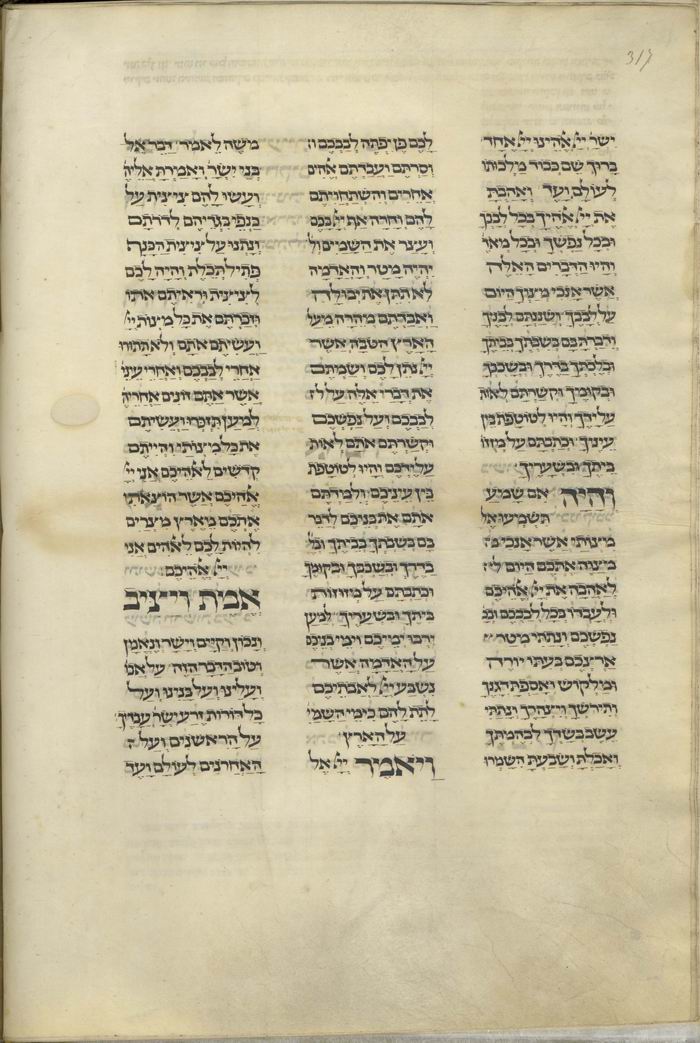 317
ישר יי אהינו יי אחד
ברוך שם כבוד מלכותו
לעולם ועד ואהבת
את יי אהיך בכל לבבך
ובכל נפשך ובכל מאד
והיו הדברים האלה
אשר אנכי מצוך היום
על לבבך ושננתם לבניך
ודברת בם בשבתך בביתך
ובלכתך בדרך ובשכבך
ובקומיך וקשרתם לאות
על ידך והיו לטוטפת בין
עיניך וכתבתם על מזוזו
ביתך ובשעריך
והיה אם שמוע
תשמיעו אל
מיצותי אשר אנכי מ
מיצוה אתכם היום לי
לאהבה את יי אהיכם
ולעבדו בכל לבבכם ובכ
נפשכם ונתתי מיטר
ארצכם בעתו יורה
ומלקוש ואספת דגנך
ותירשך ויצהרך ונתתי
עשב בשדך לבהמיתך
ואכלת ושבעת השמרו
לכם פן יפתה לבבכם ו
וסרתם ועבדתם אהים
אחרים והשתחויתם
להם וחרה אף יי בכם
ועצר את השמים ול
יהיה מיטר והאדמיה
לא תתן את יבולה
ואבדתם מיהרה מיעל
הארץ הטבה אשר
יי נתן לכם ושמיתם
את דברי אלה על ל
לבבכם ועל נפשכם
וקשרתם אתם לאות
על ידכם והיו לטוטפת
בין עיניכם ולמידתם
אתם את בניכם לדבר
בם בשבתך בביתך וב
בדרך ובשכבך ובקומך
וכתבתם על מזוזות
ביתך ובשעריך למען
ירבו ימיכם וימי בניכם
על האדמיה אשר
נשבע יי לאבתיכם
לתת להם כימי השמי
על הארץ
ויאמר יי אל
משה לאמר דבר אל
בני ישר ואמרת אליה
ועשו להם ציצית על
כנפי בגדיהם לדרתם
ונתנו על ציצית הכנף
פתיל תכלת והיה לכם
לציצית וראיתם אותו
וזכרתם את כל מיצות יי
ועשיתם אתם ולא תתורו
אחרי לבבכם ואחרי עיני
אשר אתם זונים אחריה
למען תזכרו ועשיתם
את כל מיצותי והייתם
קדשים לאהיכם אני יי
אהיכם אשר הוצאתי
אתכם מארץ מצרים
להיות לכם לאהים אני
יי אהיכם
אמת ויציב
ונכון וקיים וישר ונאמן
וטוב הדבר הזה על אבו
ועלינו ועל בנינו ועל
כל דורות זרע ישר עבדיך
על הראשונים ועל ה
האחרנים לעולם ועד